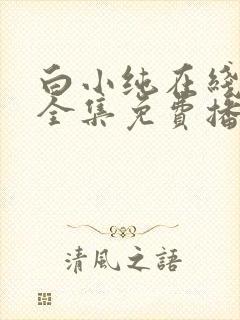 白小纯在綫
全集免費播
清風之語